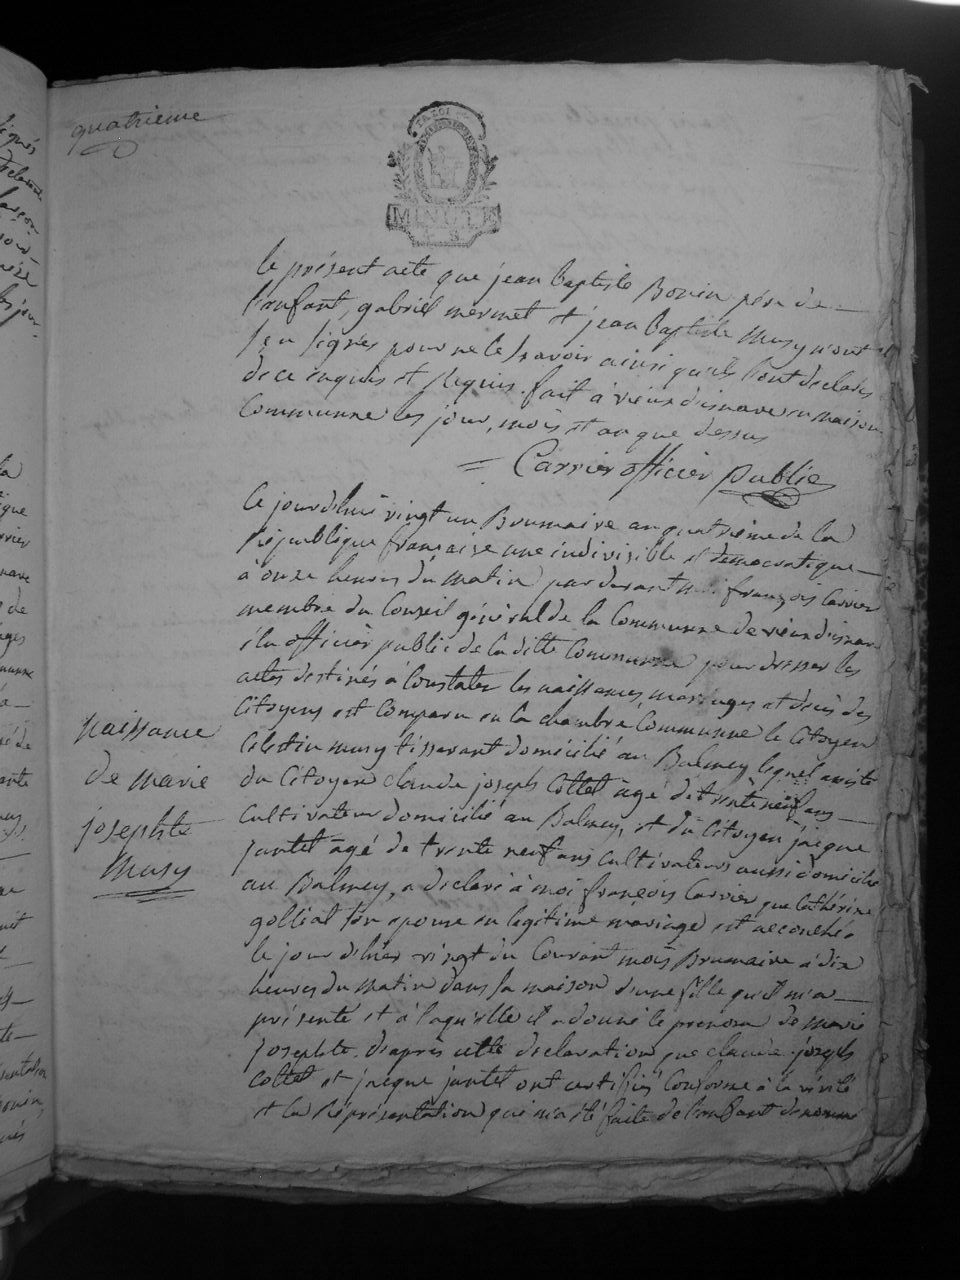 quatrieme
LA LOI
MINUTE
le présent acte que jean baptiste Bonin père de
l'enfant, gabriel mermet et jean baptiste Musy n'ont
sçu signés pour ne le sçavoir ainsi qu'ils l'ont declarés
de ce enquis et requis. fait à vieux disnave en maison
Communne les jour, mois et an que dessus
= Carrier officier public
Ce jourd'hui vingt un Brumaire an quatrieme de la
République française une indivisible et democratique
à onze heures du matin par devant moi françois Carrier
membre du Conseil général de la Communne de vieux disnave
élu officier public de la ditte Communne pour dresser les
actes destinés à Constater les naissances, mariages et décès des
Citoyens est Comparu en la chambre Communne le Citoyen
Célestin musy tisserant domicilié au Balmey lequel assisté
du Citoyen claude joseph Collet agé de trente neuf ans
Cultivateur domicilié au Balmey, et du Citoyen jacque
jantet agé de trente neuf ans Cultivateurs aussi domicilié
au Balmey, a declaré à moi françois Carrier que Cathérine
golliat son epouse en legitime mariage est accouchée
le jour d'hier vingt du Courant mois Brumaire à dix
heures du matin dans sa maison d'une fille qu'il m'a
présenté et à laquelle il a donné le prenom de marie
josephte. d'après cette declaration que claude joseph
Collet et jacque jantet ont certifiés Conforme à la vérité
et la Représentation qui m'a été faite de l'enfant denommé
naissance
de marie
josephte
Musy